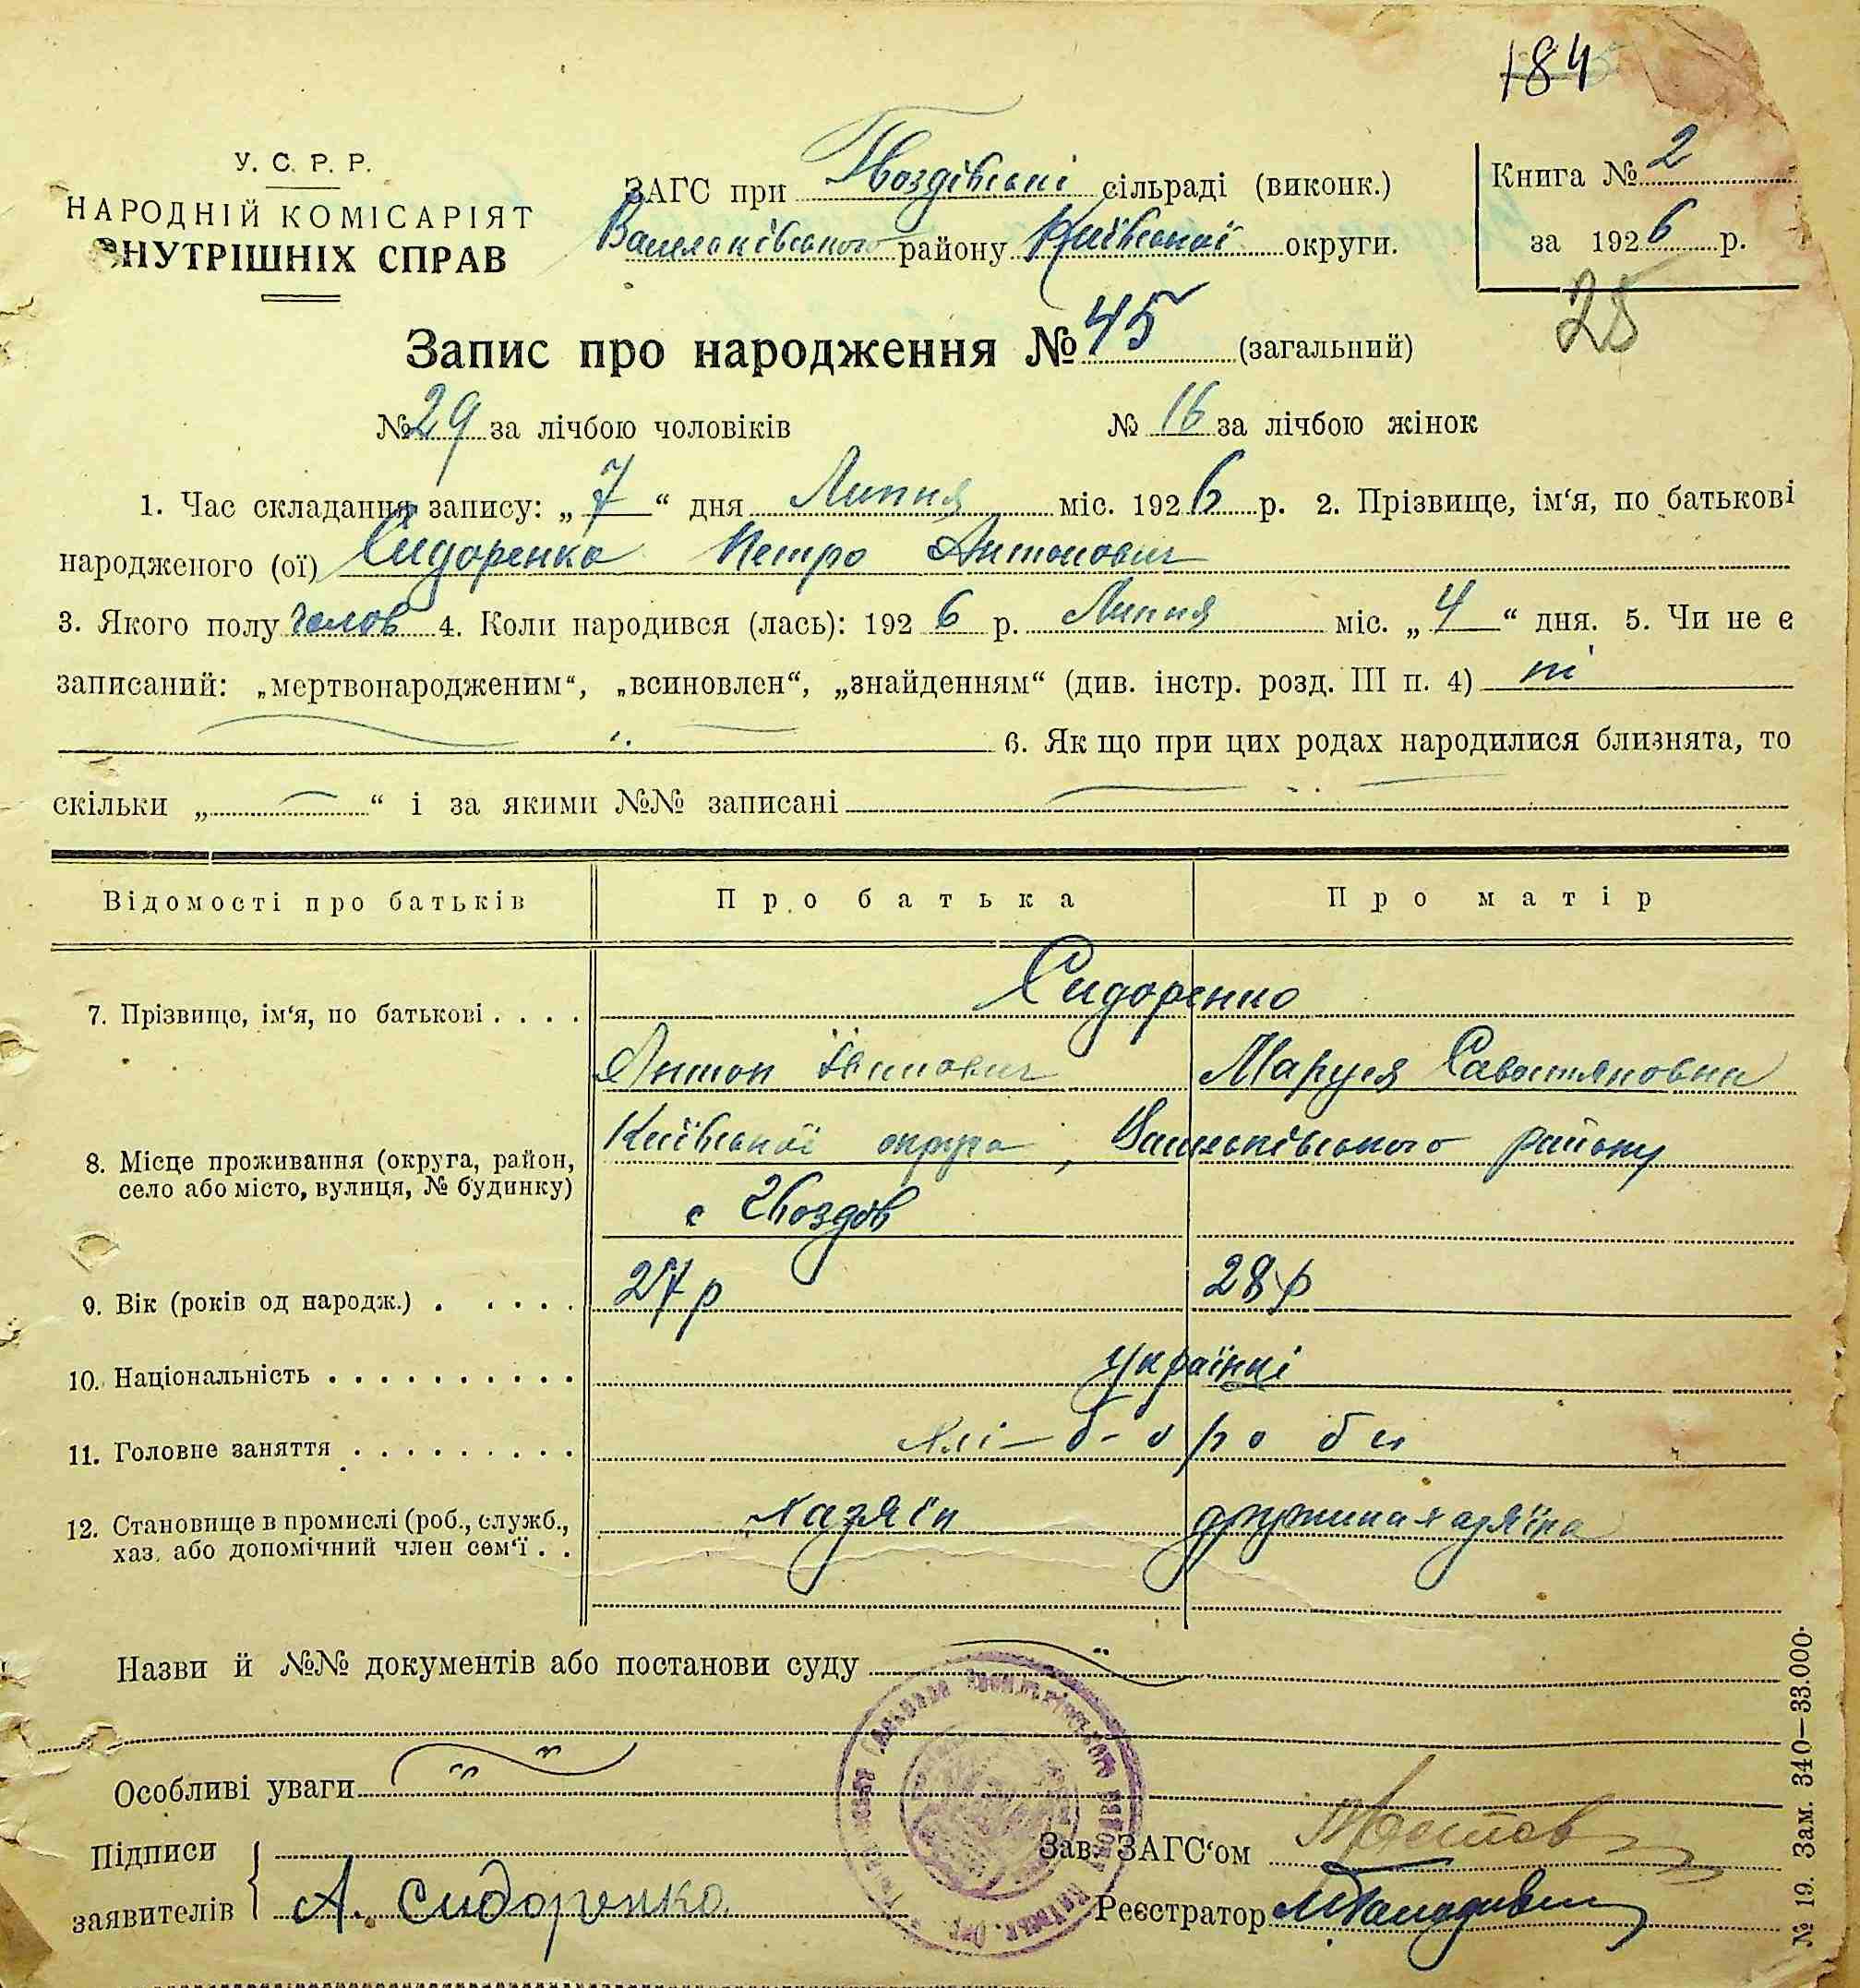 184
У. С. Р. Р.
НАРОДНІЙ КОМІСАРІЯТ
ВНУТРІШНІХ СПРАВ
ЗАГС при Гвоздівські сільраді (виконк.)
Васильківського району Київської округи.
Книга № 2
за 1926 р.
25
Запис про народження № 45 (загальний)
№ 29 за лічбою чоловіків № 16 за лічбою жінок
1. Час складання запису: „7“ дня Липня міс. 1926 р. 2. Прізвище, ім‘я, по батькові
народженого (ої) Сидоренко Петро Антонович
3. Якого полу чолов 4. Коли народився (лась): 1926 р. Липня міс. „4“ дня. 5. Чи не є
записаний: „мертвонародженим“, „всиновлен“, „знайденням“ (див. інстр. розд. III п. 4) ні
6. Як що при цих родах народилися близнята, то
скільки „ “ і за якими №№ записані
Відомості про батьків Про батька Про матір
7. Прізвище, ім‘я, по батькові . . . . Сидоренко
Антон Маруся Савастяновна
8. Місце проживання (округа, район,
село або місто, вулиця, № будинку)
Київської округа, Васильківського району
с Гвоздів
9. Вік (років од народж.) . . . . . 27 р 28 р
10. Національність . . . . . . . . . . українці
11. Головне заняття . . . . . . . . . хлі-б-о р о б и
12. Становище в промислі (роб., служб.,
хаз. або допомічний член сем‘ї . .
хазяїн дружина хазяїна
Назви й №№ документів або постанови суду
Особливі уваги
Підписи
заявителів
А. Сидоренко
Зав. ЗАГС‘ом
Реєстратор
№ 19. Зам. 340—33.000.